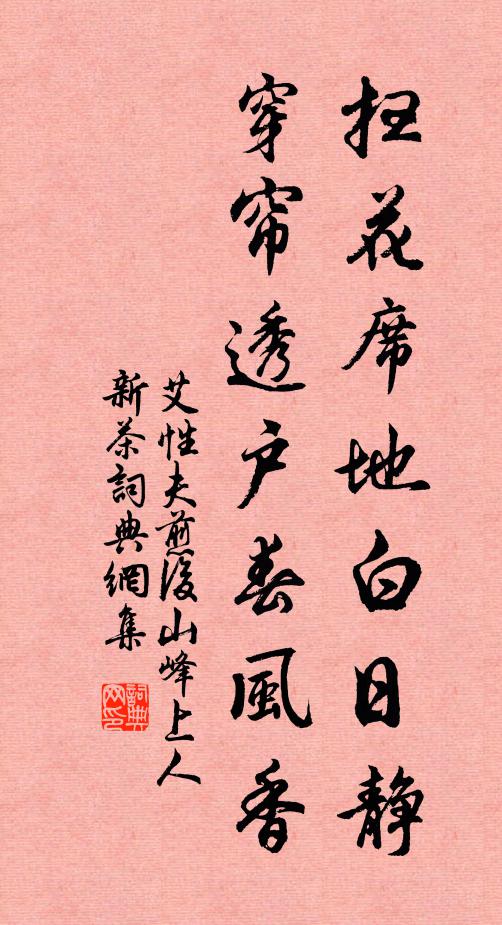 扫花席地白日静
穿帘透户春風香
艾性夫煎後山峰上人
新茶詞典網集
詞典网印